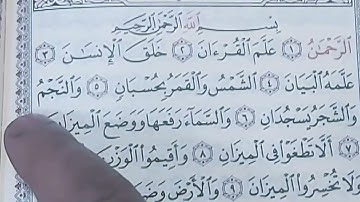 بِسْمِ ٱللَّهِ ٱلرَّحْمَٰنِ ٱلرَّحِيمِ
ٱلرَّحْمَٰنُ ١ عَلَّمَ ٱلْقُرْءَانَ ٢ خَلَقَ ٱلْإِنسَٰنَ ٣
عَلَّمَهُ ٱلْبَيَانَ ٤ ٱلشَّمْسُ وَٱلْقَمَرُ بِحُسْبَانٍ ٥ وَٱلنَّجْمُ
وَٱلشَّجَرُ يَسْجُدَانِ ٦ وَٱلسَّمَآءَ رَفَعَهَا وَوَضَعَ ٱلْمِيزَانَ
٧ أَلَّا تَطْغَوْا۟ فِى ٱلْمِيزَانِ ٨ وَأَقِيمُوا۟ ٱلْوَزْنَ
وَلَا تُخْسِرُوا۟ ٱلْمِيزَانَ ٩ وَٱلْأَرْضَ